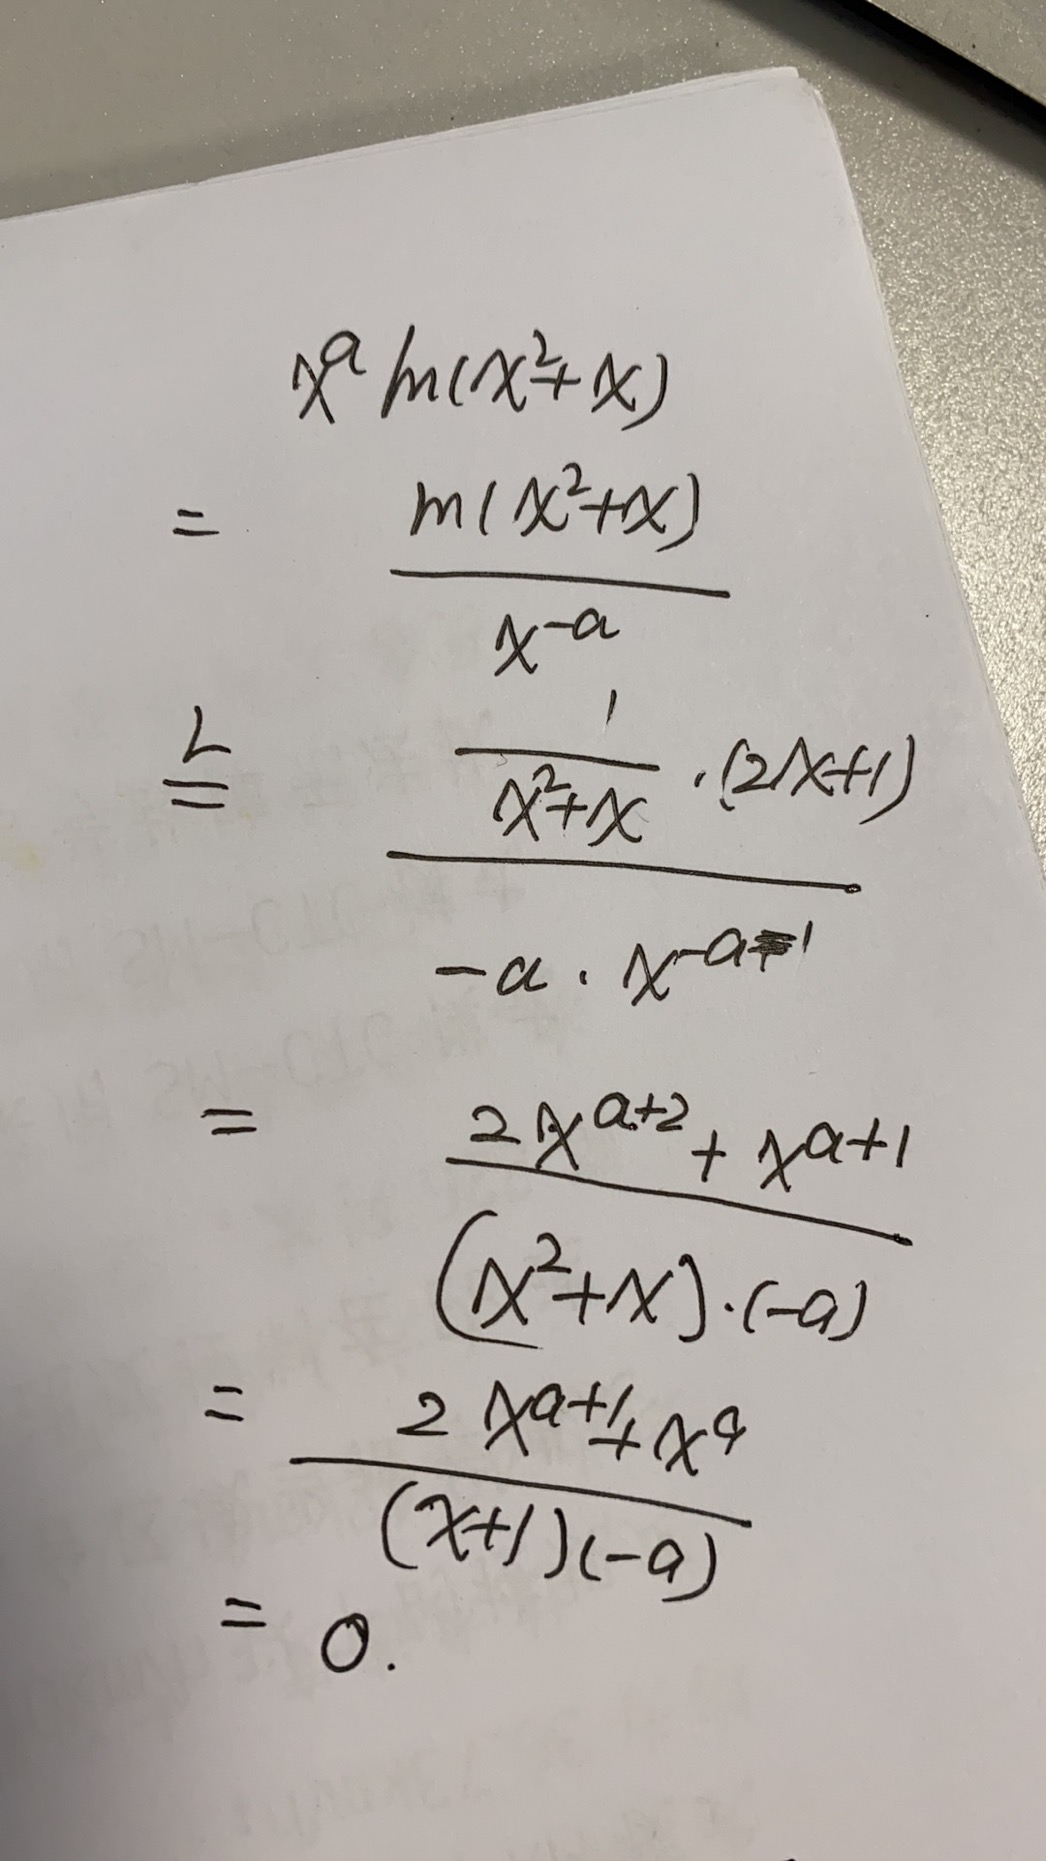 x^a ln(x²+x)
= ln(x²+x) / x^{-a}
\overset{L}{=} (1/(x²+x) · (2x+1)) / (-a · x^{-a-1})
= (2x^{a+2} + x^{a+1}) / ((x²+x)·(-a))
= (2x^{a+1} + x^a) / ((x+1)(-a))
= 0.